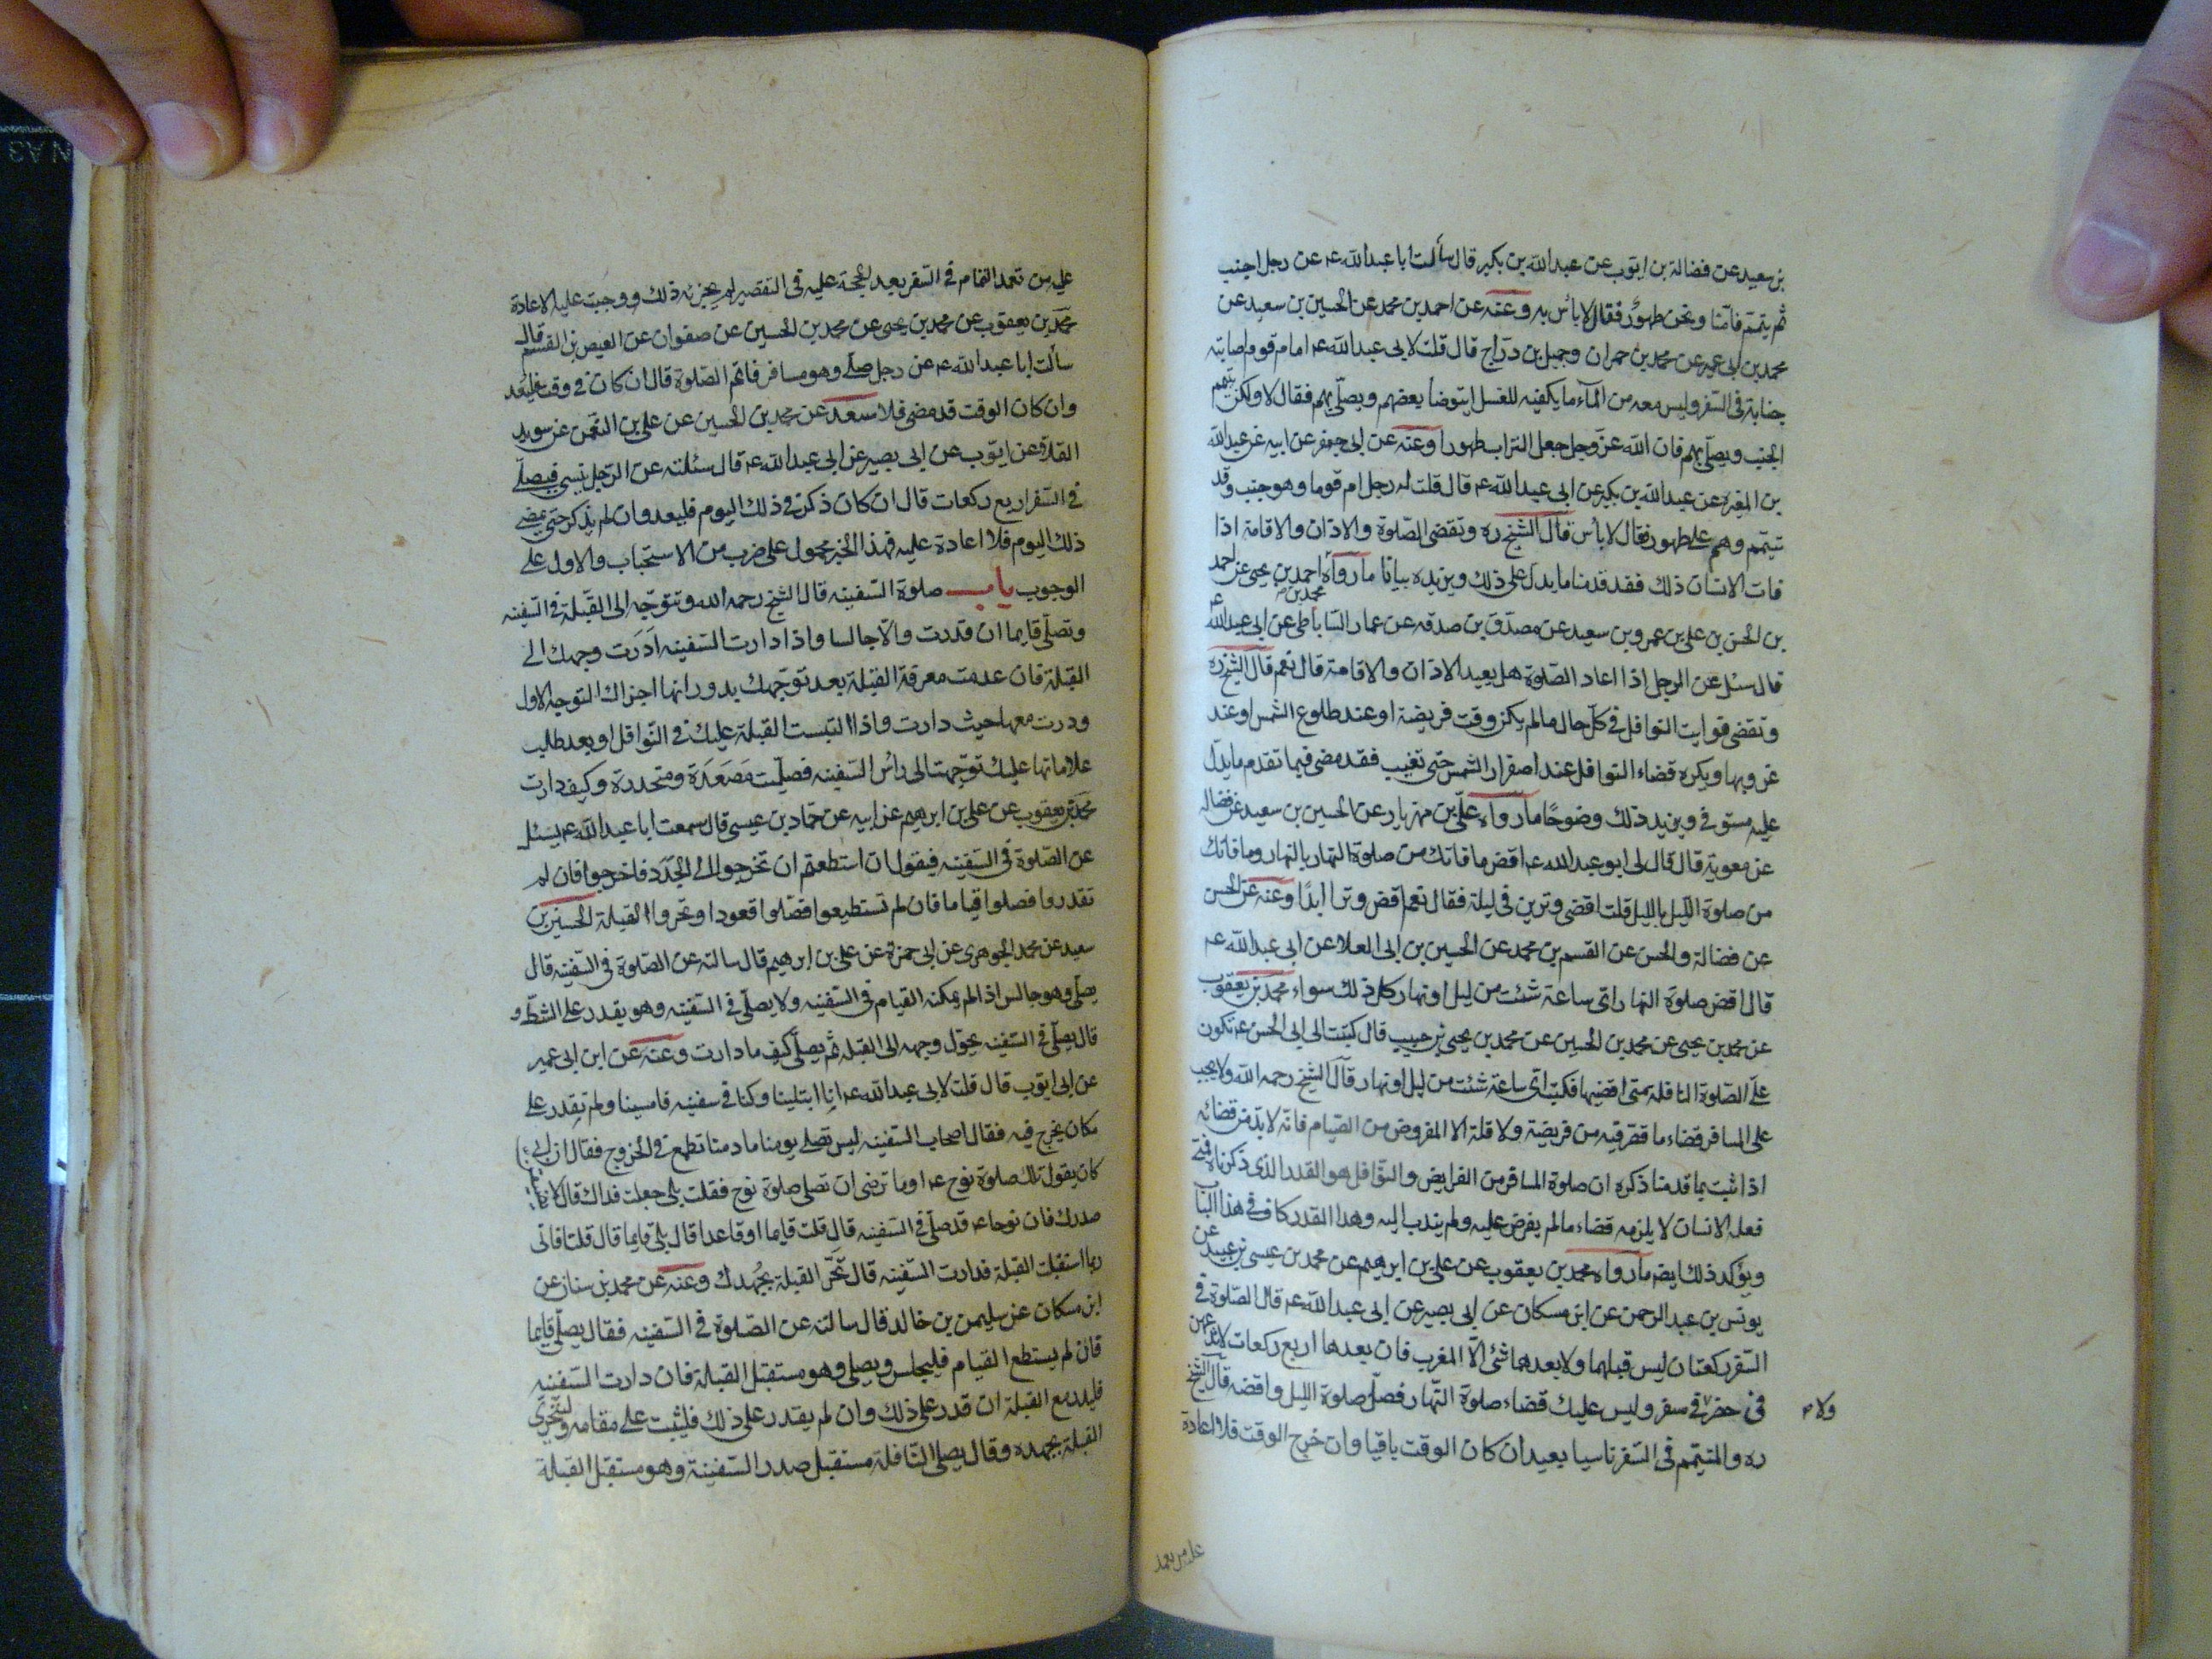 بن سعيد عن فضالة بن ايوب عن عبد الله بن بكير قال سألت ابا عبد الله ع عن رجل اجنب
ثم يتيمم فامنا ونحن طهور فقال لا بأس به وعنه عن احمد بن محمد عن الحسين بن سعيد عن
محمد بن ابي عمير عن محمد بن حمران وجميل بن دراج قال قلت لابي عبد الله ع امام قوم اصابته
جنابة في السفر وليس معه من الماء ما يكفيه للغسل ايتوضأ بعضهم ويصلي بهم فقال لا ولكن يتيمم
الجنب ويصلي بهم فان الله عز وجل جعل التراب طهورا وعنه عن ابي جعفر عن ابيه عن عبد الله
بن المغيره عن عبد الله بن بكير عن ابي عبد الله ع قال قلت له رجل ام قوما وهو جنب وقد
تيمم وهم على طهور فقال لا بأس قال الشيخ ره وتقضى الصلوة والاذان والاقامة اذا
فات الانسان ذلك فقد قدمنا ما يدل على ذلك ويزيده بيانا ما رواه احمد بن يحيى عن احمد
محمد بن
بن الحسن بن علي بن عمرو بن سعيد عن مصدق بن صدقه عن عمار الساباطي عن ابي عبد الله ع
قال سئل عن الرجل اذا اعاد الصلوة هل يعيد الاذان والاقامة قال نعم قال الشيخ ره
وتقضى فوايت النوافل في كل حال ما لم يكن وقت فريضة او عند طلوع الشمس او عند
غروبها ويكره قضاء النوافل عند اصفرار الشمس حتى تغيب فقد مضى فيما تقدم ما يدل
عليه مستوفى ويزيد ذلك وضوحا ما رواه علي بن مهزيار عن الحسين بن سعيد عن فضاله
عن معوية قال قال لي ابو عبد الله ع اقض ما فاتك من صلوة النهار بالنهار وما فاتك
من صلوة الليل بالليل قلت اقضي وترين في ليلة فقال نعم اقض وترا ابدا وعنه عن الحسن
عن فضالة والحسن عن القسم بن محمد عن الحسين بن ابي العلا عن ابي عبد الله ع
قال اقض صلوة النهار اى ساعة شئت من ليل او نهار كل ذلك سواء محمد بن يعقوب
عن محمد بن يحيى عن محمد بن الحسين عن محمد بن يحيى بن حبيب قال كتبت الى ابي الحسن ع تكون
على الصلوة النافلة متى اقضيها فكتب اى ساعة شئت من ليل او نهار قال الشيخ رحمه الله ولا يجب
على المسافر قضاء ما قصر فيه من فريضة ولا قلة الا المفروض من الصيام فانه لا بد من قضائه
اذا ثبت بما قدمنا ذكره ان صلوة المسافر من الفرايض والنوافل هو القدر الذي ذكرناه فمتى
فعله الانسان لا يلزمه قضاء ما لم يفرض عليه ولم يندب اليه وهذا القدر كاف في هذا الباب
ويؤكد ذلك ايضا ما رواه محمد بن يعقوب عن علي بن ابرهيم عن محمد بن عيسى بن عبيد عن
يونس بن عبد الرحمن عن ابن مسكان عن ابي بصير عن ابي عبد الله ع قال الصلوة في
السفر ركعتان ليس قبلهما ولا بعدهما شئ الا المغرب فان بعدها اربع ركعات لا تدعهن
في حضر ولا في سفر وليس عليك قضاء صلوة النهار فصل صلوة الليل واقضه قال الشيخ
ره والمتيمم في السفر ناسيا يعيد ان كان الوقت باقيا وان خرج الوقت فلا اعادة
ولا
على من تعمد
على من تعمد التمام في السفر بعد الحجة عليه في التقصير لم يجزئه ذلك ووجبت عليه الاعادة
محمد بن يعقوب عن محمد بن يحيى عن محمد بن الحسين عن صفوان عن العيص بن القسم قال
سألت ابا عبد الله ع عن رجل صلى وهو مسافر فاتم الصلوة قال ان كان في وقت فليعد
وان كان الوقت قد مضى فلا سعد عن محمد بن الحسين عن علي بن النعمن عن سويد
القلا عن ايوب عن ابي بصير عن ابي عبد الله ع قال سئلته عن الرجل ينسى فيصلي
في السفر اربع ركعات قال ان كان ذكر في ذلك اليوم فليعد وان لم يذكر حتى يمضي
ذلك اليوم فلا اعادة عليه فهذا الخبر محمول على ضرب من الاستحباب والاول على
الوجوب باب صلوة السفينه قال الشيخ رحمه الله وتتوجه الى القبلة في السفينه
وتصلي قايما ان قدرت والا جالسا واذا دارت السفينه ادرت وجهك الى
القبلة فان عدمت معرفة القبلة بعد توجهك بدورانها اجزاك التوجه الاول
ودرت معها حيث دارت واذا التبست القبلة عليك في النوافل او بعد طلب
علاماتها عليك توجهت الى رأس السفينه فصليت مصعدة ومنحدرة وكيف دارت
محمد بن يعقوب عن علي بن ابرهيم عن ابيه عن حماد بن عيسى قال سمعت ابا عبد الله ع يسئل
عن الصلوة في السفينه فيقول ان استطعتم ان تخرجوا الى الجدد فاخرجوا فان لم
تقدروا فصلوا قياما فان لم تستطيعوا فصلوا قعودا وتحروا القبلة الحسين بن
سعيد عن محمد الجوهرى عن ابي حمزة عن علي بن ابرهيم قال سالته عن الصلوة في السفينه قال
يصلي وهو جالس اذا لم يمكنه القيام في السفينه ولا يصلي في السفينه وهو يقدر على الشط و
قال يصلي في السفينه يحول وجهه الى القبله ثم يصلي كيف ما دارت وعنه عن ابن ابي عمير
عن ابي ايوب قال قلت لابي عبد الله ع انا ابتلينا وكنا في سفينه فامسينا ولم نقدر على
مكان نخرج فيه فقال اصحاب السفينه ليس نصلي يومنا ما دمنا نطمع في الخروج فقال ان ابي
كان يقول تلك صلوة نوح ع اوما ترضى ان تصلي صلوة نوح فقلت بلى جعلت فداك قال لا يضيقن
صدرك فان نوحا ع قد صلى في السفينه قال قلت قايما او قاعدا قال بلى قايما قال قلت فاني
ربما استقبلت القبلة فدارت السفينه قال تحر القبلة بجهدك وعنه عن محمد بن سنان عن
ابن مسكان عن سليمن بن خالد قال سالته عن الصلوة في السفينه فقال يصلي قايما
فان لم يستطع القيام فليجلس ويصلي وهو مستقبل القبلة فان دارت السفينه
فليدر مع القبلة ان قدر على ذلك وان لم يقدر على ذلك فليثبت على مقامه وليتحرى
القبلة بجهده وقال يصلي النافلة مستقبل صدر السفينة وهو مستقبل القبلة